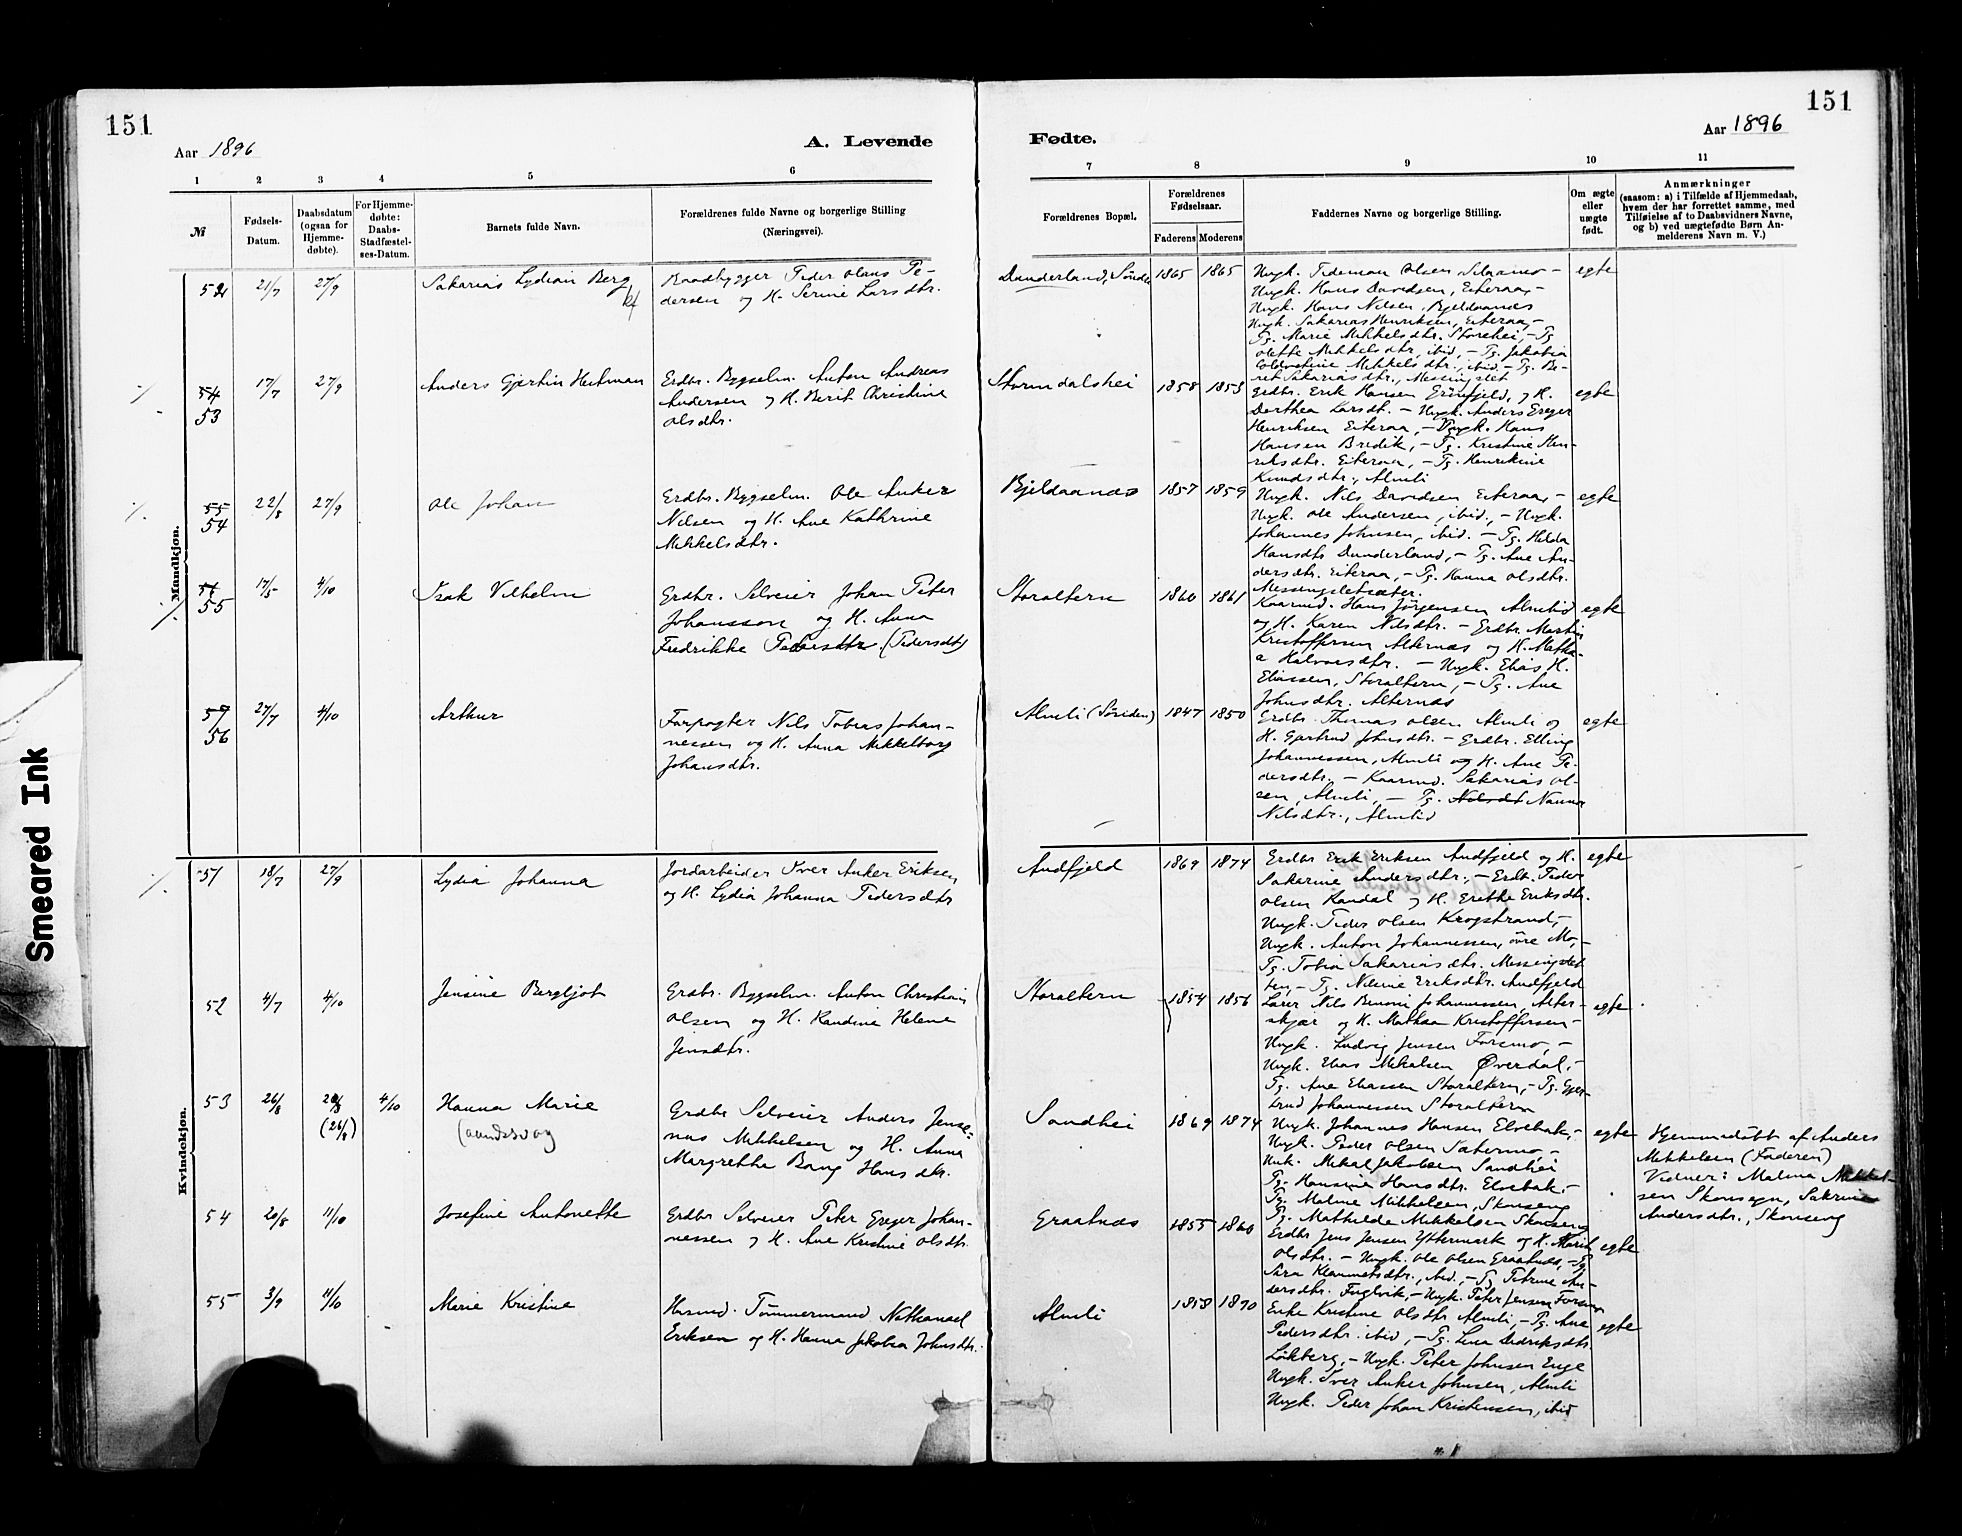 151
Aar 1896
A. Levende
1 2 3 4 5 6
№
Fødsels-
Datum.
Daabsdatum
(ogsaa for
Hjemme-
døbte).
For Hjemme-
døbte:
Daabs-
Stadfæstel-
ses-Datum.
Barnets fulde Navn.
Forældrenes fulde Navne og borgerlige Stilling
(Næringsvei).
Mandkjøn.
52 21/7 27/9 Sakarias Lydian Berg
Baadbygger Peder Olaus Pe-
dersen og H. Serine Larsdtr.
54 17/7 27/9 Anders Gjertin Hertman
53
Erdbr. Bygselm. Anton Andreas
Andersen og H. Berit Christine
Olsdtr.
55 22/8 27/9 Ole Johan
54
Erdbr. Bygselm. Ole Anker
Nilsen og H. Ane Kathrine
Mikkelsdtr.
56 17/5 4/10 Isak Vilhelm
55
Erdbr. Selveier Johan Peter
Johansson og H. Anna
Fredrikke Petersdtr. (Pedersdtr)
57 27/7 4/10 Arthur
56
Forpagter Nils Tobias Johan-
nessen og H. Anna Mikkelborg
Johansdtr.
Kvindekjøn.
51 18/7 27/9 Lydia Johanna
Jordarbeider Iver Anker Eriksen
og H. Lydia Johanna Pedersdtr
52 4/7 4/10 Jensine Bergljot
Erdbr. Bygselm. Anton Christian
Olsen og H. Randine Helene
Jensdtr.
53 26/8 (26/8) 4/10 Hanna Marie
Erdbr Selveier Anders Jense-
nus Mikkelsen og H. Anna
Margrethe Bang Hansdtr.
54 20/8 11/10 Josefine Antonette
Erdbr Selveier Peter Greger Johan-
nessen og H. Ane Kristine Olsdtr.
55 3/9 11/10 Marie Kristine
Husmd. Tømmermand Nathanael
Eriksen og H. Hanna Jakobea Johnsdtr.
151
Fødte.
Aar 1896
7 8 9 10 11
Forældrenes Bopæl.
Forældrenes
Fødselsaar.
Faderens Moderens
Faddernes Navne og borgerlige Stilling.
Om ægte
eller
uægte
født.
Anmærkninger
(saasom: a) i Tilfælde af Hjemmedaab,
hvem der har forrettet samme, med
Tilføielse af to Daabsvidners Navne,
og b) ved uægtefødte Børn An-
melderens Navn m. V.)
Dunderland, 1865 1865 Ungk. Tideman Olsen Selaamo - egte
Ungk. Hans Davidsen, Eiteraa, -
Ungk. Hans Nilsen, Bjeldaanes
Ungk. Sakarias Henriksen, Eiteraa, -
Pg. Marie Mikkelsdtr. Storehei, - Pg
Olette Mikkelsdtr, ibid, - Pg. Jakobia
Mikkelsdtr., ibid. - Pg. Be-
ret Sakariasdtr., Messingslet
Stormdalshei 1858 1853 Erdbr. Erik Hansen Grønfjeld, og H. egte
Dorthea Larsdt. - Ungk. Anders Greger
Henriksen Eiteraa, - Ungk. Hans
Hansen Bredik, - Pg. Kristine Hen-
riksdtr. Eiteraa, - Pg. Henrikine
Knudsdtr., Almli
Bjeldaanæs 1857 1859 Ungk. Nils Davidsen Eiteraa, - egte
Ungk. Ole Andersen, ibid., - Ungk.
Johannes Johnsen, ibid. - Pg. Hilda
Hansdtr Dunderland, - Pg. Ane An-
dersdtr. Eiteraa, - Pg. Hanna Olsdtr.
Messingsletsæter.
Storaltern 1860 1861 Kaarmd. Hans Jørgensen Almlid egte
og H. Karen Nilsdtr. - Erdbr. Martin
Kristoffersen Alternæs og H. Math-
Halvorsdtr. - Ungk. Elias H.
Eliassen, Storaltern, - Pg. Ane
Johnsdtr. Alternæs
Almli (Søsiden) 1847 1850 Erdbr. Thomas Olsen Almli og egte
H. Gjertrud Johnsdtr. - Erdbr. Elling
Johannessen, Almli og H. Ane Pe-
dersdtr. - Kaarmd. Sakarias Ol-
sen, Almli, - Pg. Nilsdt Nanna
Nilsdtr., Almlid
Andfjeld 1869 1874 Erdbr Erik Eriksen Andfjeld og H. egte
Sakarine Andersdtr., - Erdbr. Peder
Olsen Randal og H. Grethe Eriksdtr.
Ungk. Peder Olsen Krogstrand, -
Ungk. Anton Johannessen, øvre Mo, -
Pg. Tobia Sakariasdtr. Messingslet
ten, - Pg. Nilsine Eriksdtr. Andfjeld
Storaltern 1854 1856 Lærer Nils Benoni Johannessen, Alter- egte
skjær og H. Mathea Kristoffersen -
Ungk. Ludvig Jensen Forsmo, -
Ungk. Elias Mikalsen Øverdal, -
Pg. Ane Eliassen Storaltern, - Pg. Gjer-
trud Johannessen Storaltern
Sandhei 1869 1874 Ungk. Johannes Hansen Elvebak, - egte
Ungk. Peder Olsen Sætermo, -
Unk. Mikal Jakobsen Sandhei
Pg. Hansine Hansdtr. Elvebak, -
Pg. Maline Mikkelsen, Skonseng
Pg. Mathilde Mikkelsen Skonseng
Hjemmedøbt af Anders
Mikkelsen (Faderen)
Vidner: Malina Mikkel-
sen Skonseng, Sakrine
Andersdtr., Skonseng
Graatnæs 1855 1860 Erdbr Jens Jensen Yttermark og H. Marit egte
Olsdtr. - Ungk. Ole Olsen Graatnæs, - Pg
Sara Klemmetsdtr., ibid, - Pg Petrine An-
dersdtr. Fuglvik, - Ungk. Peter Jensen Forsmo
Almli 1858 1870 Enke Kristine Olsdtr Almli, - Pg. Ane egte
Pedersdtr. ibid, - Pg. Lina Didriksdtr
Løkberg, - Ungk. Peter Johnsen Enge
Ungk. Iver Anker Johnsen, Almli
Ungk. Peder Johan Kristensen, ibid
Smeared Ink